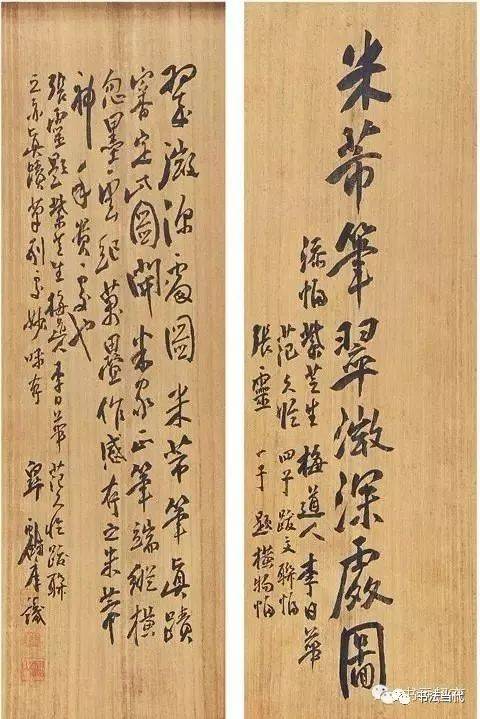 米芾筆翠微深處圖
添帖 紫芝生 梅道人 李日華
范允臨 四子 跋文聯帖
張靈 一子 題橫物帖
翠微深處圖 米芾筆真蹟
審定此圖開米家正筆端縱橫
忽墨雲起萬疊作感存之米芾
神手
張靈題 紫芝生 李日華 范允臨 跋聯
亦真蹟 妙味存
书法当代